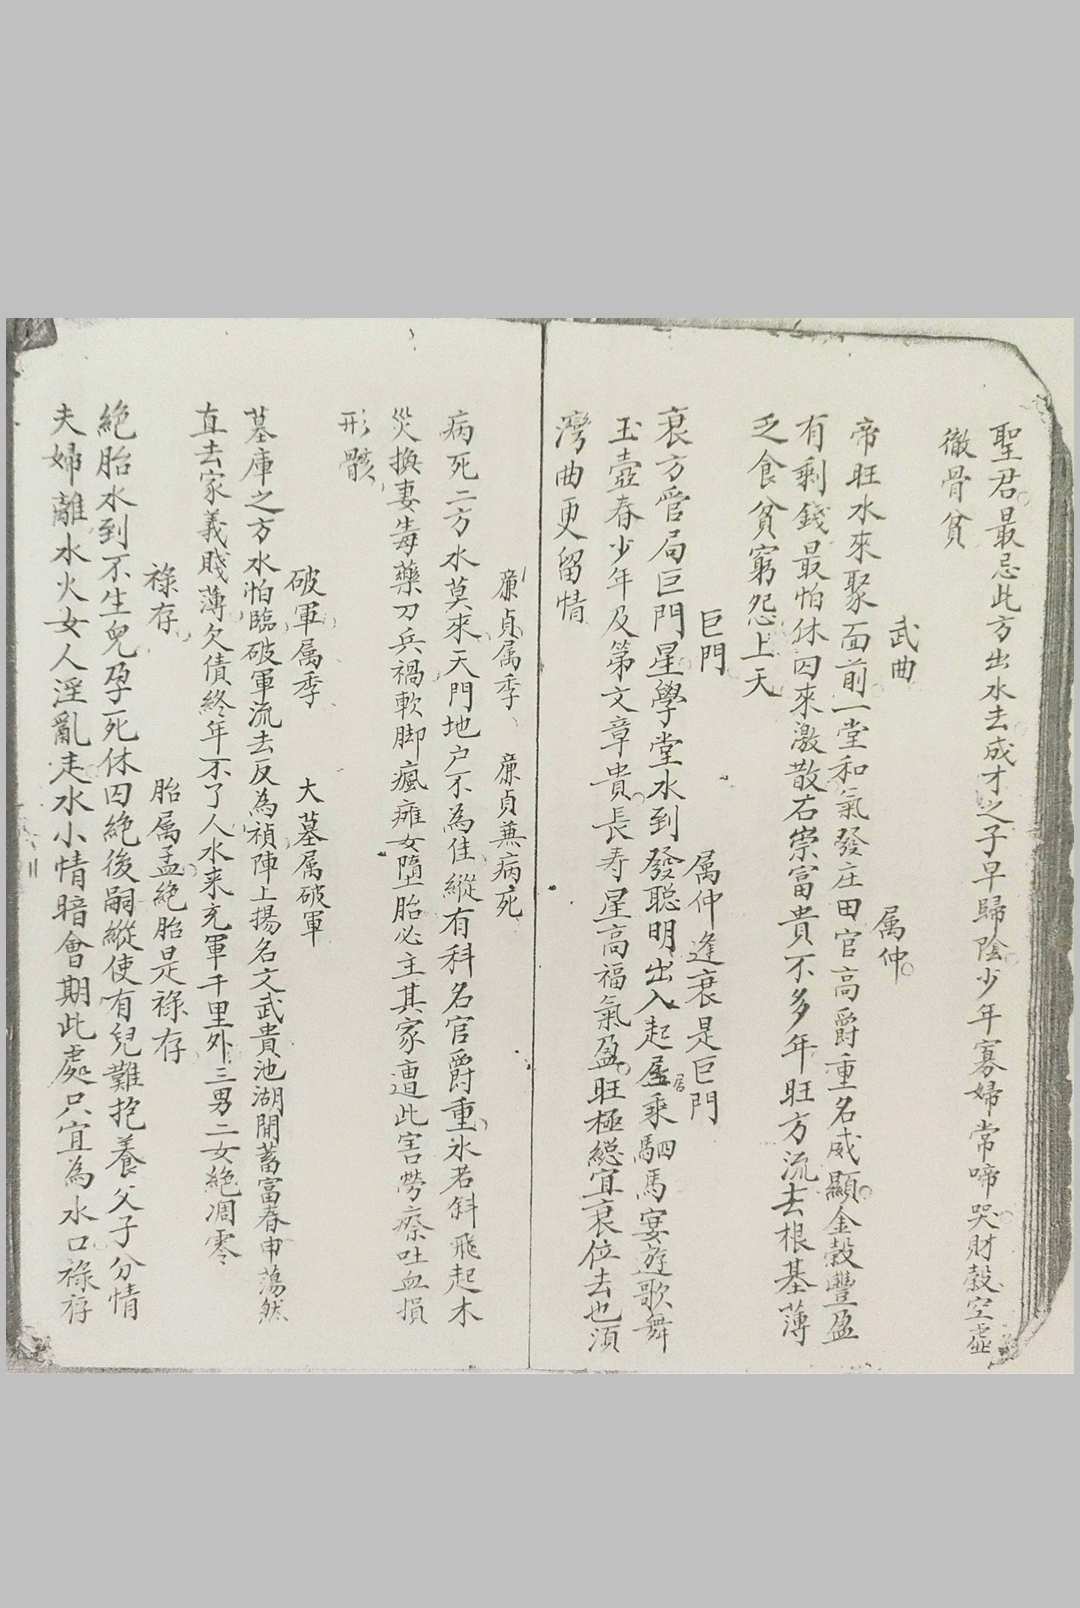 聖君最忌此方出水去成才之子早歸陰少年寡婦常啼哭財穀空虛
徹骨貧
武曲　属仲
帝旺水來聚面前一堂和氣發庄田官高爵重名威顯金穀豐盈
有剩錢最怕休囚來激散右崇富貴不多年旺方流去根基薄
乏食貧窮怨上天
巨門　属仲逢衰是巨門
衰方管局巨門星學堂水到發聰明出入起居乘駟馬宴遊歌舞
居
玉壺春少年及第文章貴長寿星高福氣盈旺極縂宜衰位去也須
灣曲更留情
廉貞属季　廉貞兼病死
病死二方水莫來天門地户不為佳縱有科名官爵重水若斜飛起木
災換妻毒藥刀兵禍軟脚瘋癱女墮胎必主其家遭此害勞瘵吐血損
形骸
破軍属季　大墓属破軍
墓庫之方水怕臨破軍流去反為禎陣上揚名文武貴池湖開蓄富春申蕩然
直去家義賤薄欠債終年不了人水来充軍千里外三男二女絶凋零
祿存　胎属孟絶胎是祿存
絶胎水到不生兒孕死休囚絶後嗣縱使有兒難抱養父子分情
夫婦離水火女人淫亂走水小情暗會期此處只宜為水口祿存